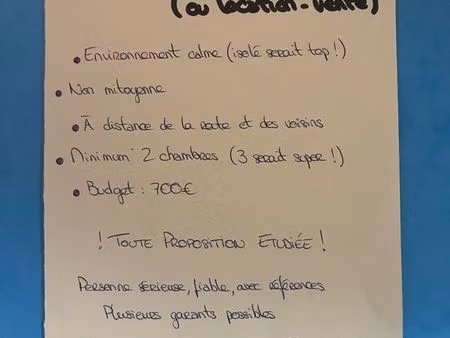 (ou location-vente)
• Environnement calme (isolé serait top !)
• Non mitoyenne
• À distance de la route et des voisins
• Minimum 2 chambres (3 serait super !)
• Budget : 700€
! TOUTE PROPOSITION ETUDIÉE !
Personne sérieuse, fiable, avec références
Plusieurs garants possibles